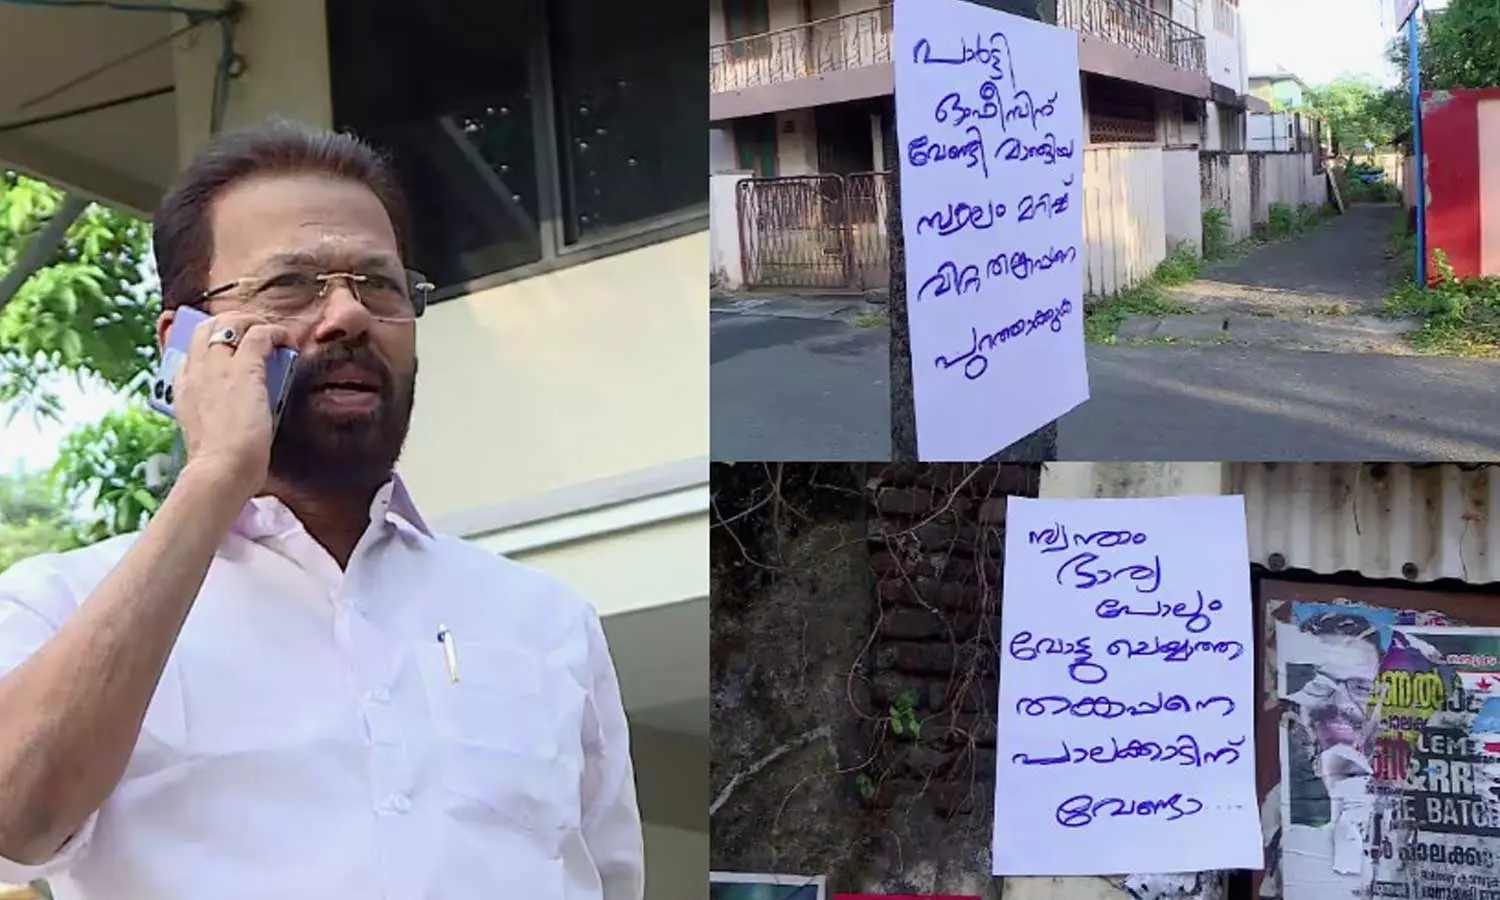 പാർട്ടി
ഓഫീസിന്
വേണ്ടി വാങ്ങിയ
സ്ഥലം മറിച്ച്
വിറ്റ തങ്കപ്പനെ
പുറത്താക്കുക
സ്വന്തം
ഭാര്യ
പോലും
വോട്ടു ചെയ്യാത്ത
തങ്കപ്പനെ
പാലക്കാടിന്
വേണ്ടാ....
LEM
&RR
BATC